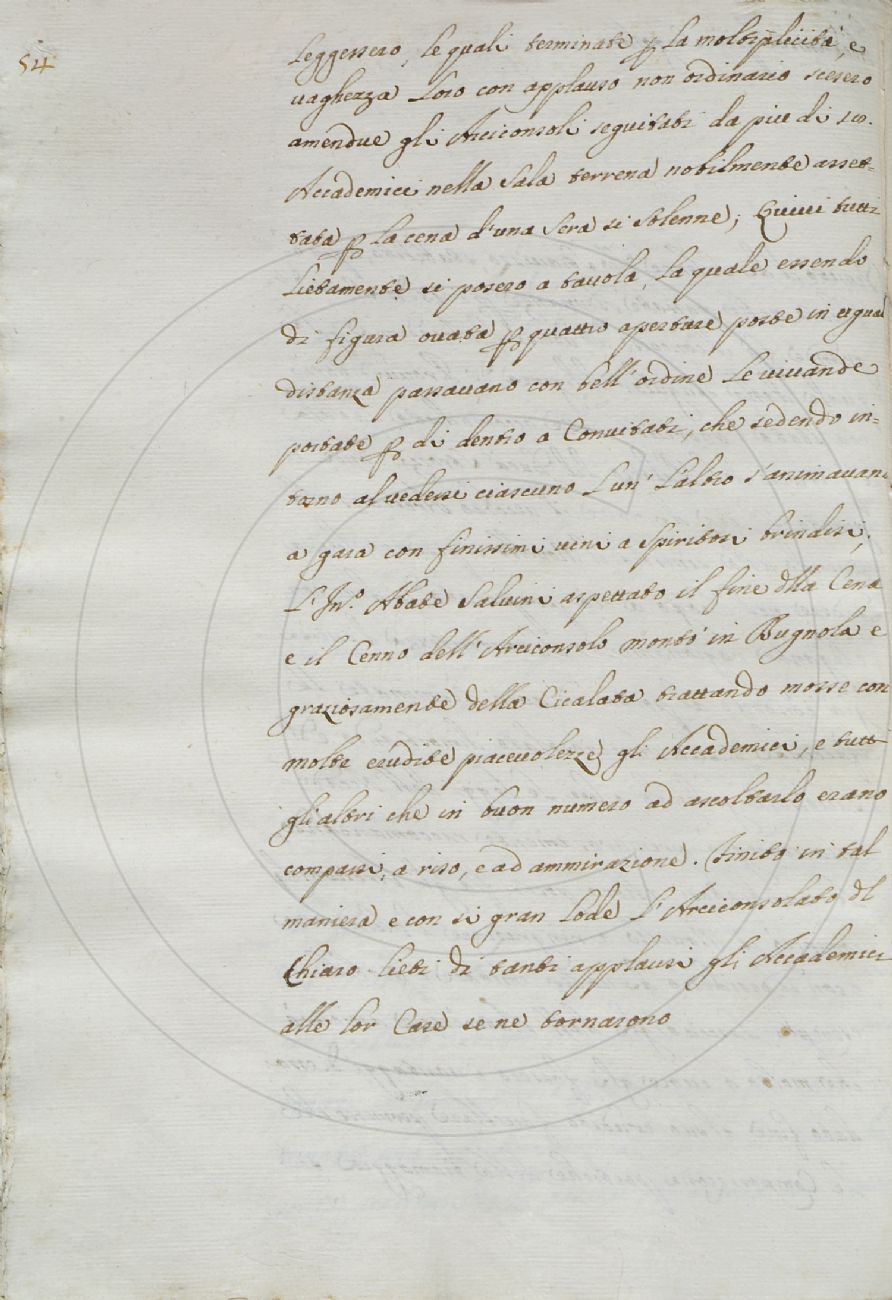 54
leggessero, le quali terminate p la moltiplicità, e
vaghezza loro con applauso non ordinario scesero
amendue gli Arciconsoli seguitati da più di 100.
Accademici nella Sala terrena nobilmente asset=
tata p la cena d'una Sera sì solenne; Quivi tutti
lietamente si posero a tavola, la quale essendo
di figura ovata p quattro aperture poste in egual
distanza passavano con bell'ordine le vivande
portate p di dentro a Convitati, che sedendo in=
torno al vedersi ciascuno l'un' l'altro s'animavan
a gara con finissimi vini a spiritosi brindisi;
L'Inn.º Abate Salvini aspettato il fine dlla Cena
e il Cenno dell'Arciconsolo montò in Bugnola e
graziosamente della Cicalata trattando mosse con
molte erudite piacevolezze gli Accademici, e tutti
gli altri che in buon numero ad ascoltarlo erano
comparsi, a riso, e ad ammirazione. Finito in tal
maniera e con sì gran lode l'Arciconsolato dl
Chiaro lieti di tanti applausi gli Accademici
alle lor Case se ne tornarono